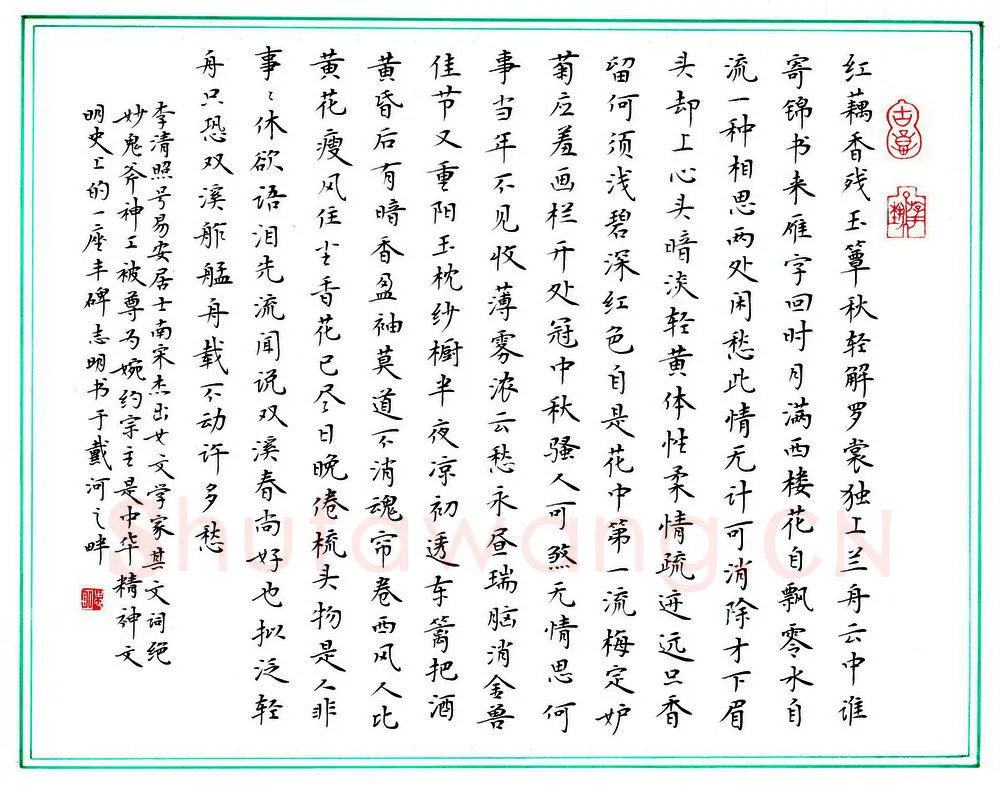 红藕香残玉簟秋轻解罗裳独上兰舟云中谁
寄锦书来雁字回时月满西楼花自飘零水自
流一种相思两处闲愁此情无计可消除才下眉
头却上心头暗淡轻黄体性柔情疏迹远只香
留何须浅碧深红色自是花中第一流梅定妒
菊应羞画栏开处冠中秋骚人可煞无情思何
事当年不见收薄雾浓云愁永昼瑞脑消金兽
佳节又重阳玉枕纱橱半夜凉初透东篱把酒
黄昏后有暗香盈袖莫道不消魂帘卷西风人比
黄花瘦风住尘香花已尽日晚倦梳头物是人非
事〻休欲语泪先流闻说双溪春尚好也拟泛轻
舟只恐双溪舴艋舟载不动许多愁
李清照号易安居士南宋杰出女文学家其文词绝
妙鬼斧神工被尊为婉约宗主是中华精神文
明史上的一座丰碑 志明书于戴河之畔
志明
Shufawang.CN